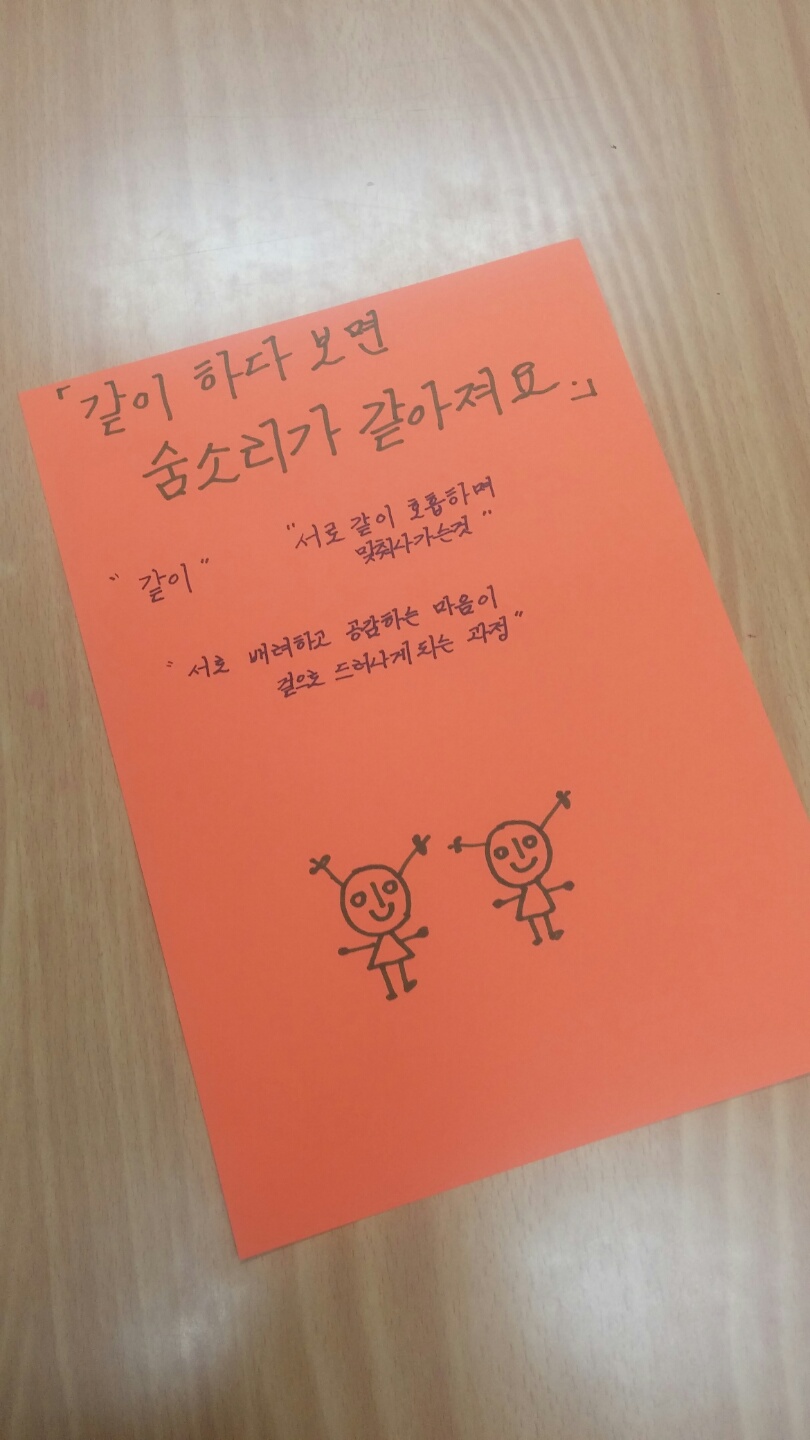 「같이 하다 보면
숨소리가 같아져요.」
"서로 같이 호흡하며
맞춰사가는것"
"같이"
"서로 배려하고 공감하는 마음이
겉으로 드러나게 되는 과정"